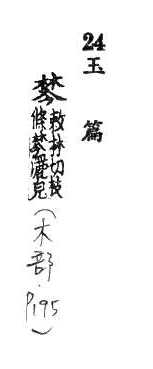 24玉篇
棽
敕林切枝
條棽儷皃
(木部.P195)